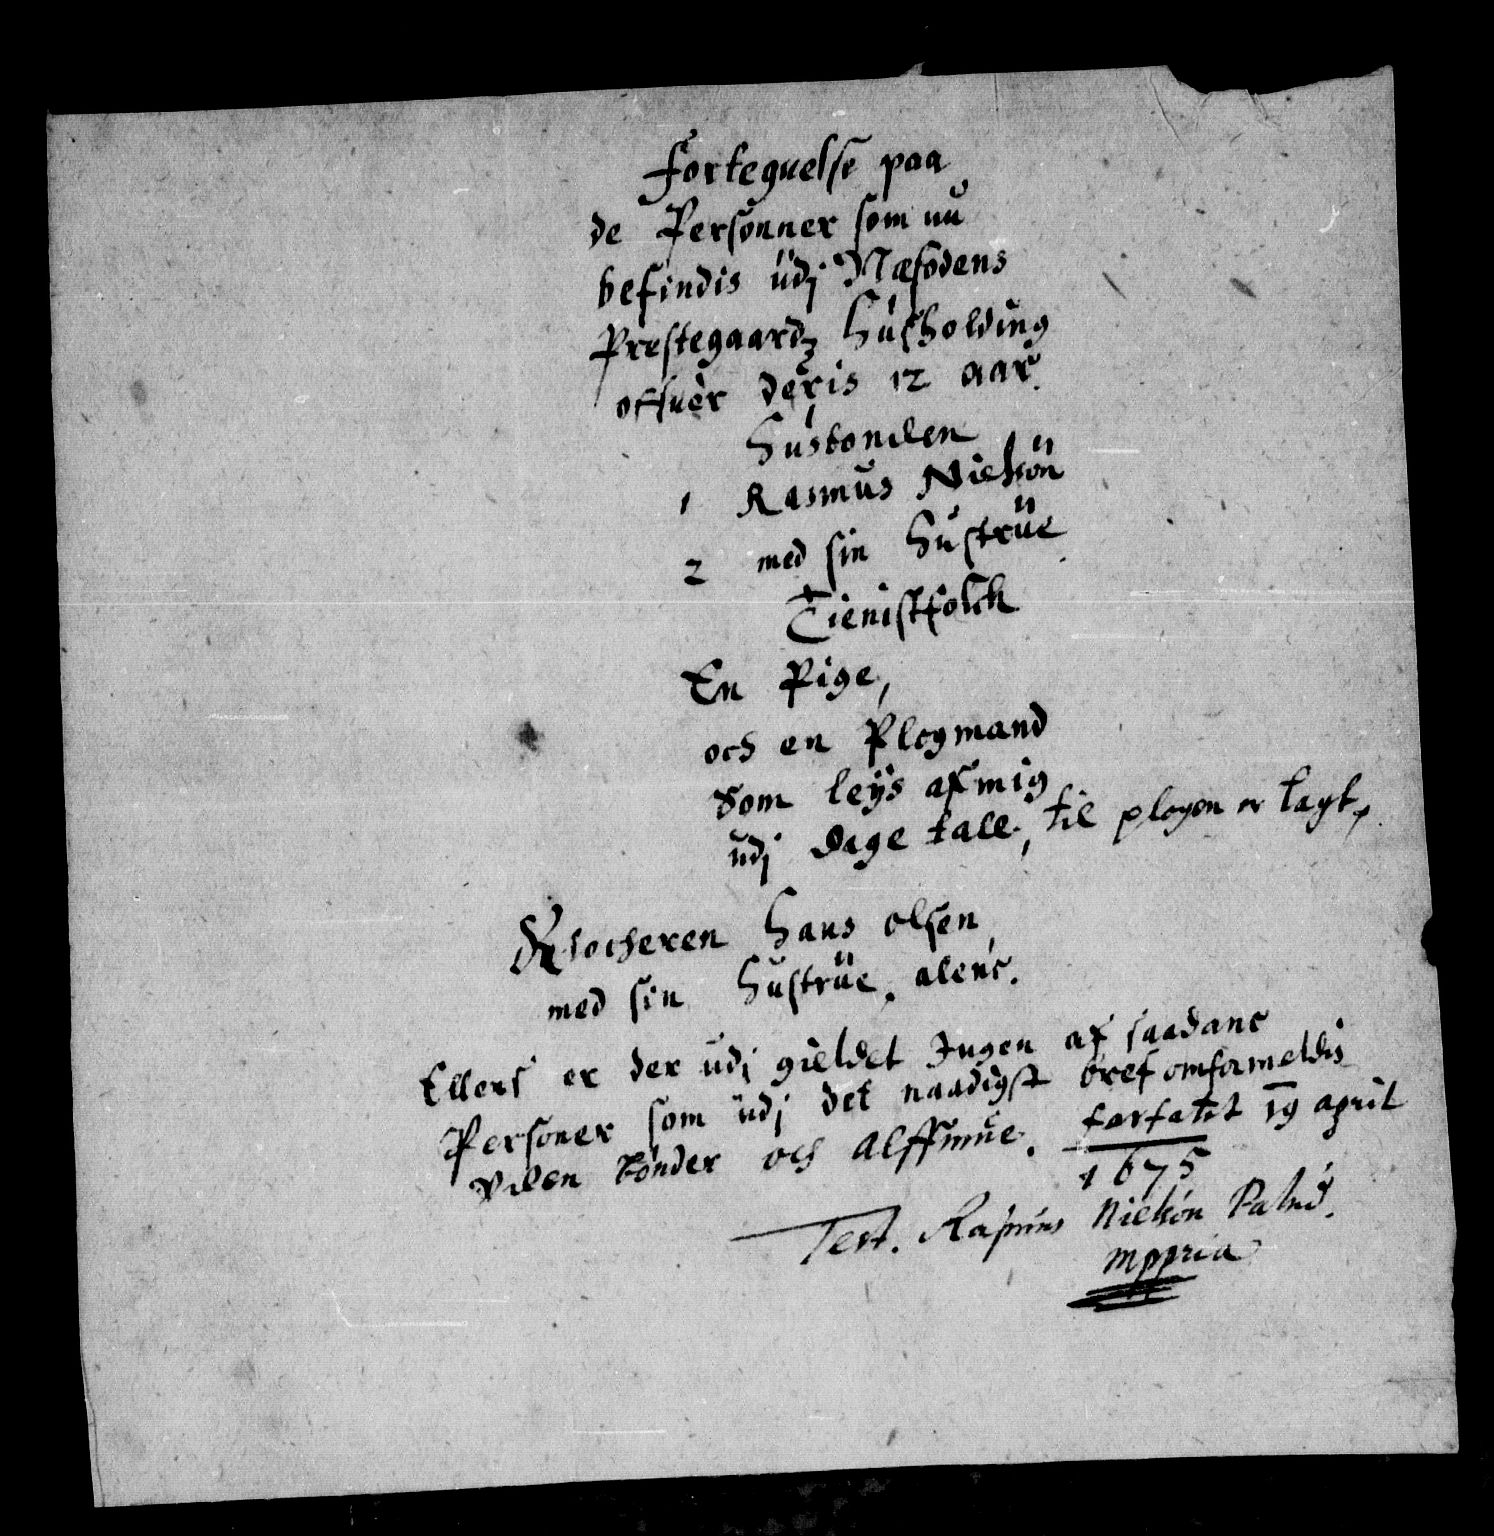 Fortegnelse paa
de Personner som nu
befindis udj Næsodens
Prestegaardz Husholding
offuer deris 12 aar.
Husbonden
1 Rasmus Nielsøn
2 med sin Hustrue
Tienistfolck
En Pige,
och en Plogmand
som leys af mig
udj dage tall, til plogen er tagt,
Klocheren Hans Olsen,
med sin Hustrue. alene.
Ellers er der udj gieldet Ingen af saadane
Personer som udj det naadigst bref omformeldis
uden bønder och Alffmue. forfatet 19 april
1675
Test. Rasmus Nielsøn Palud.
mppria